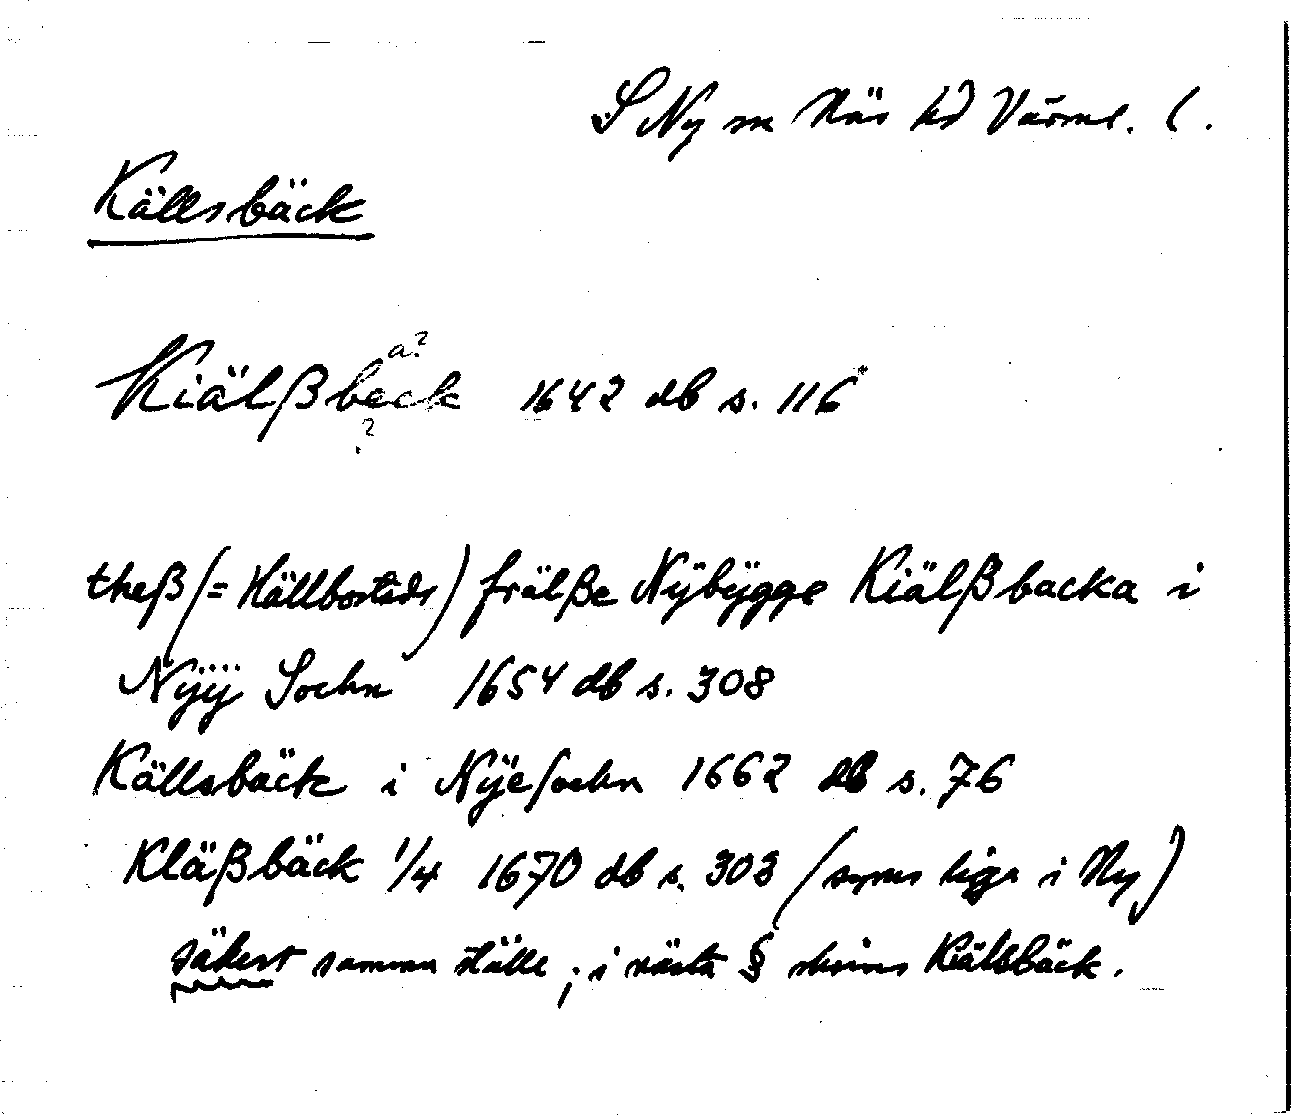 S Ny sn Näs hd Värml. l.
Källsbäck
a?
Kiälßbeck 1642 db s. 116
?
theß (= Hällbostads) frälße Nÿbÿgge Kiälßbacka i
Nÿÿ Sochn 1654 db s. 308
Källsbäck i Nÿe sochn 1662 db s. 76
Kläßbäck 1/4 1670 db s. 303 (synes ligga i Ny)
säkert samma ställe; i nästa § skrives Kiälsbäck.